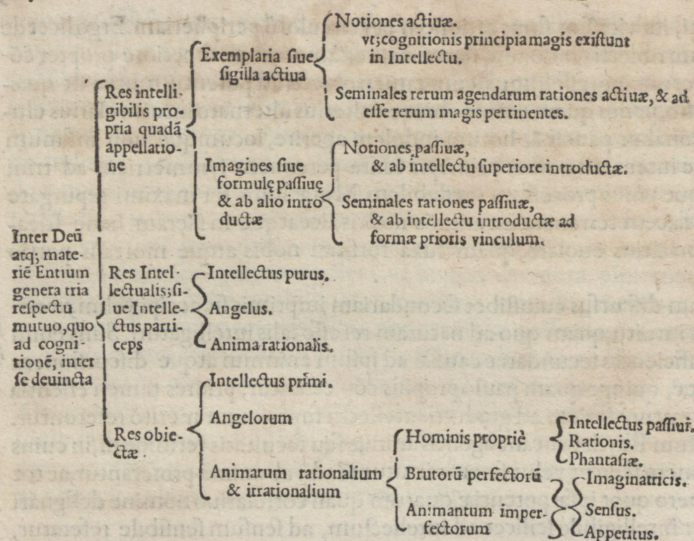 Inter Deū
atq; mate-
riē Entium
genera tria
respectu
mutuo, quo
ad cogni-
tionē, inter
se deuincta
Res intelli-
gibilis pro-
pria quadā
appellatio-
ne
Exemplaria siue
sigilla actiua
Notiones actiuæ.
vt; cognitionis principia magis existunt
in Intellectu.
Seminales rerum agendarum rationes actiuæ, & ad
esse rerum magis pertinentes.
Imagines siue
formulę passiuę
& ab alio intro
ductæ
Notiones passiuæ,
& ab intellectu superiore introductæ.
Seminales rationes passiuæ,
& ab intellectu introductæ ad
formæ prioris vinculum.
Res Intel-
lectualis; si-
ue Intelle-
ctus parti-
ceps
Intellectus purus.
Angelus.
Anima rationalis.
Res obie-
ctæ.
Intellectus primi.
Angelorum
Animarum rationalium
& irrationalium
Hominis propriè
Intellectus passiui.
Rationis.
Phantasiæ.
Brutorū perfectorū
Animantum imper-
fectorum
Imaginatricis.
Sensus.
Appetitus.